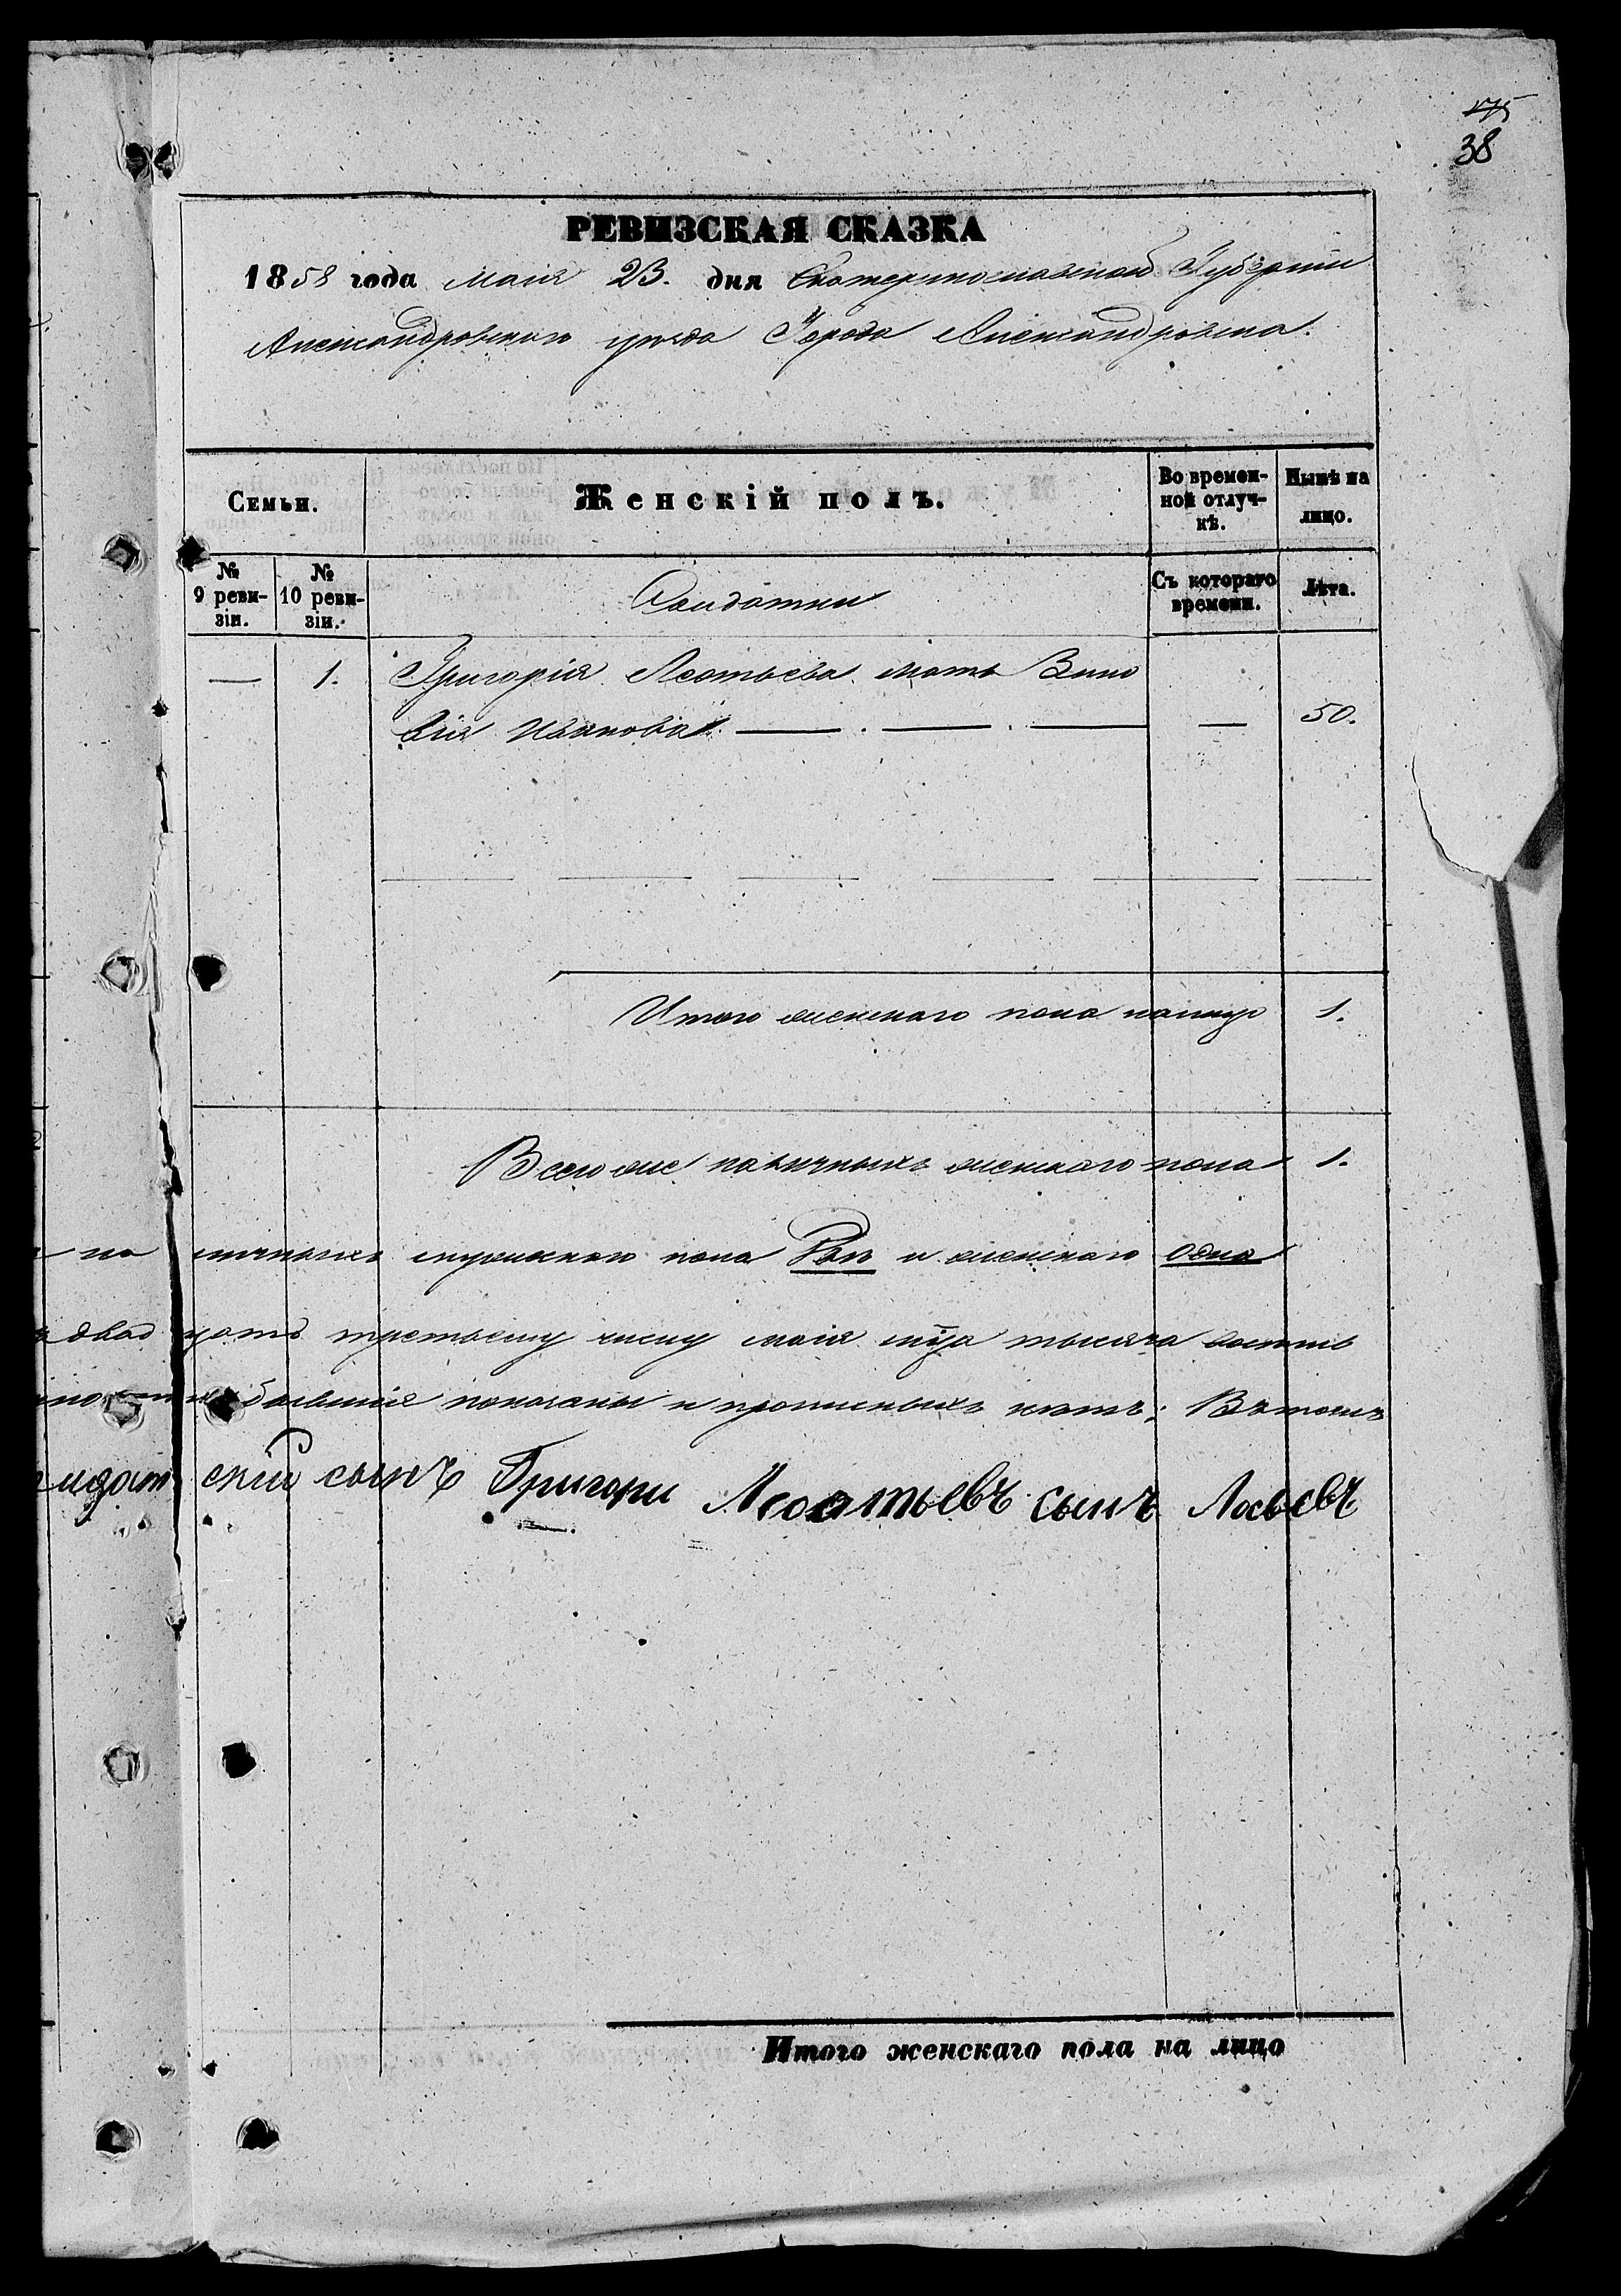 175
38
РЕВИЗСКАЯ СКАЗКА
1858 года Маія 23. дня Екатеринославской Губерніи
Александровскаго уѣзда Города Александровска.
Семьи.
Женскій полъ.
Во времен-
ной отлуч-
кѣ.
Нынѣ на
лицо.
№
9 реви-
зіи.
№
10 реви-
зіи.
Солдатки
Съ котораго
времени.
Лѣта.
— 1. Григорія Леотьева мать Зино
вія Иванова. — . — . — — 50.
Итого женскаго пола налицо 1.
Всего же наличныхъ женскаго пола 1.
на личныхъ мужескаго пола и женскаго одна
двад цать третьему числу маія мца тысяча восемь
показаны и прописныхъ нѣтъ; Вътомъ
скій сынъ Григори Леоатьевъ сынъ Лосьевъ
Итого женскаго пола на лицо